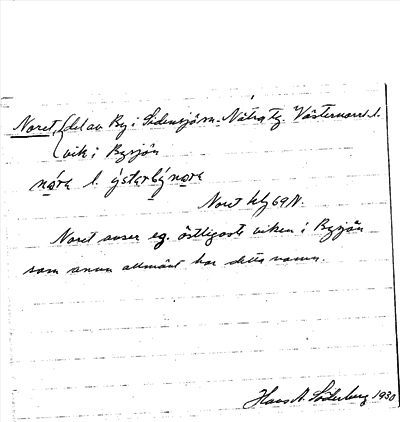 Noret, { del av By i Sidensjö sn. Nätra tg. Västernorrl. l.
vik i Bysjön
nǫra l. ýstarbýnǫra
Noret blg 69N.
Noret avser eg. östligaste viken i Bysjön
som ännu allmänt har detta namn.
Hans A. Söderberg 1930